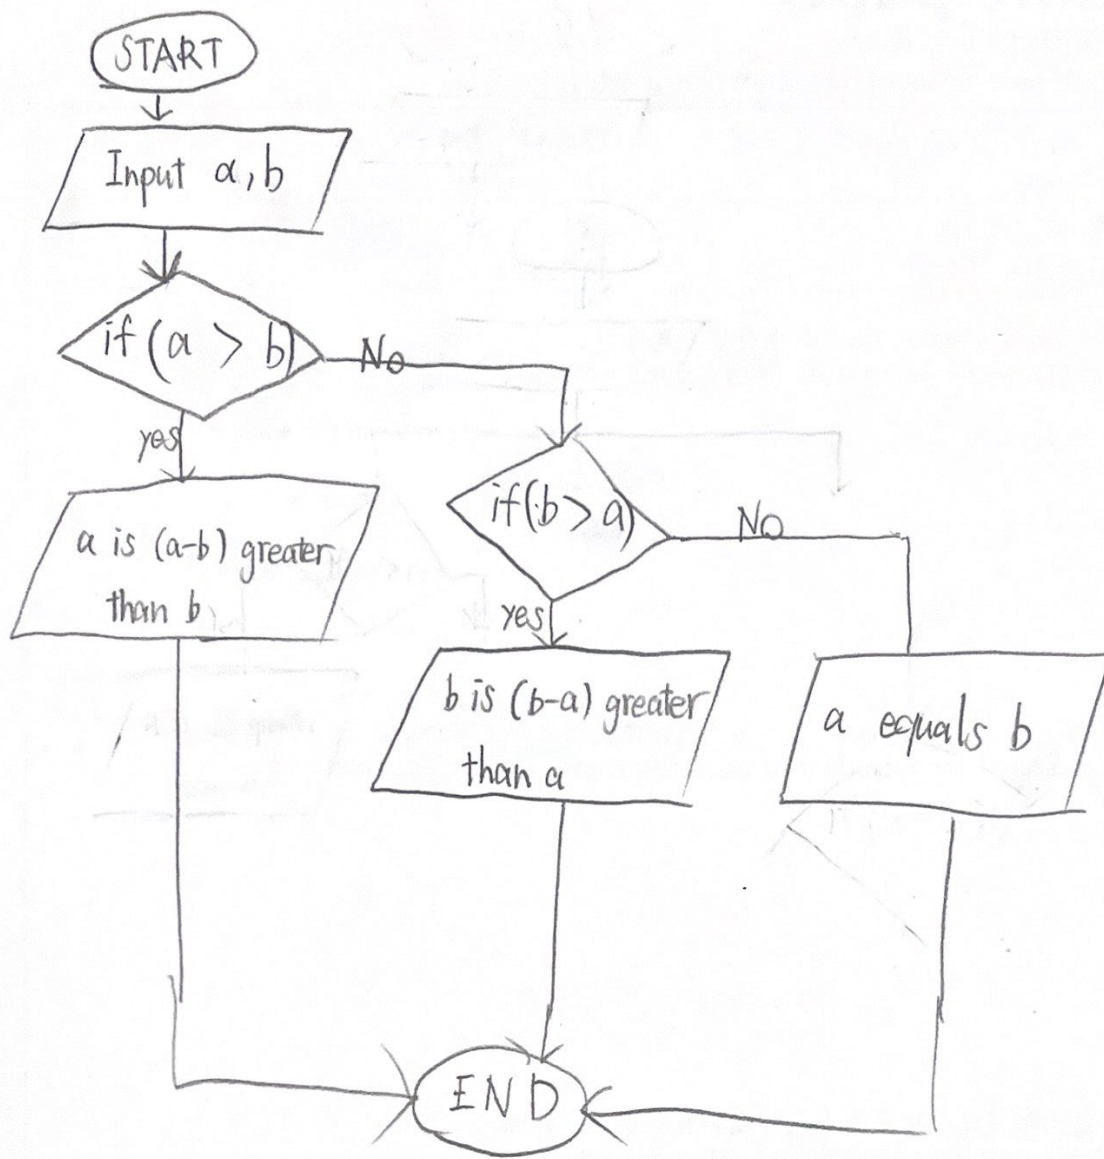 START
Input a, b
if (a > b)
No
yes
a is (a-b) greater
than b
if (b > a)
NO
yes
b is (b-a) greater
than a
a equals b
END